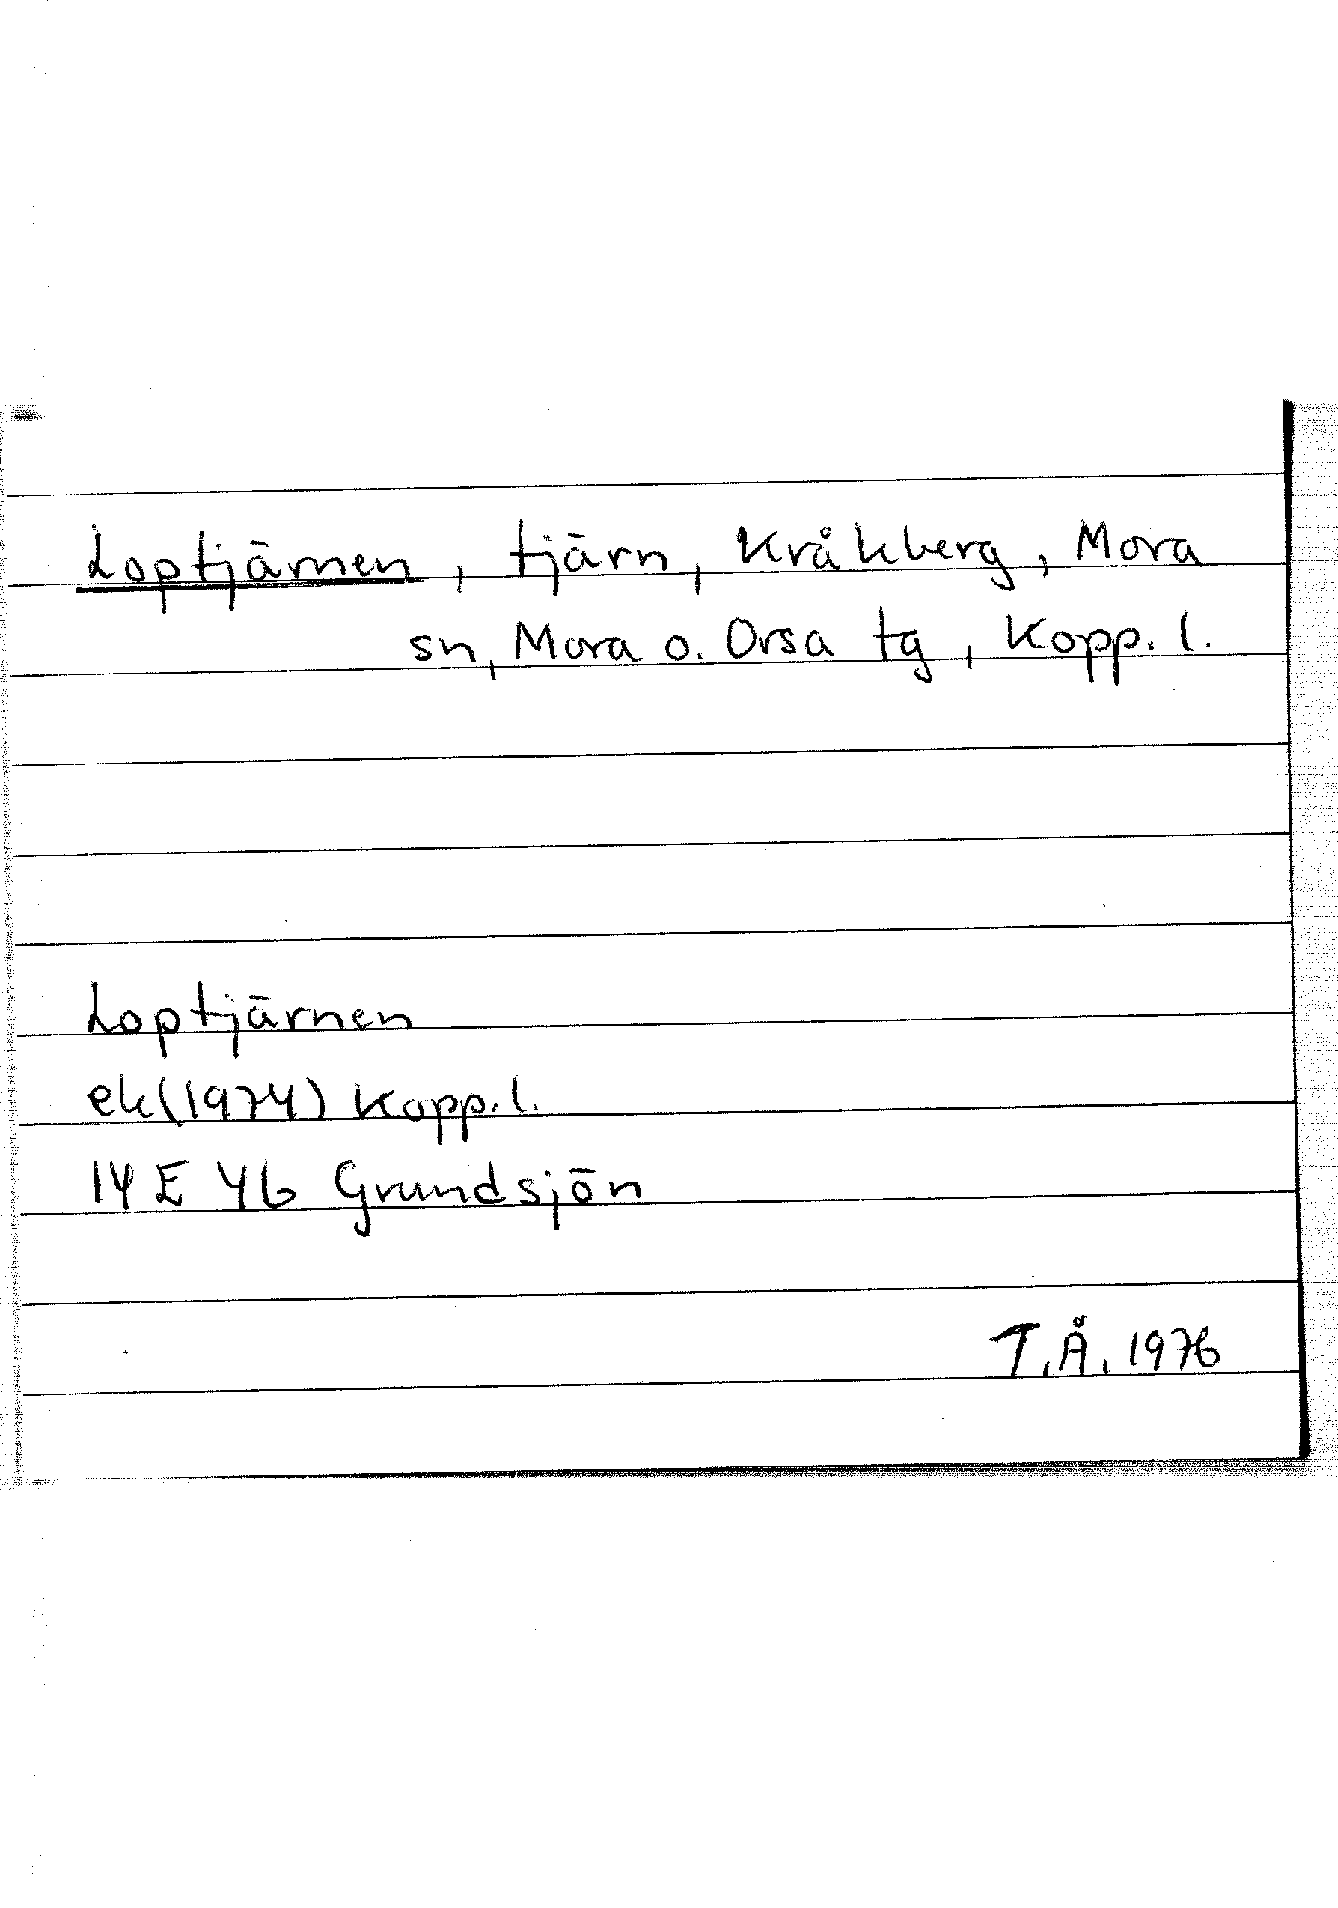 Loptjärnen, tjärn, Kråkberg, Mora
sn, Mora o. Orsa tg, Kopp. l.
Loptjärnen
ek(1974) Kopp. l.
14 E 4b Grundsjön
T.Å. 1976